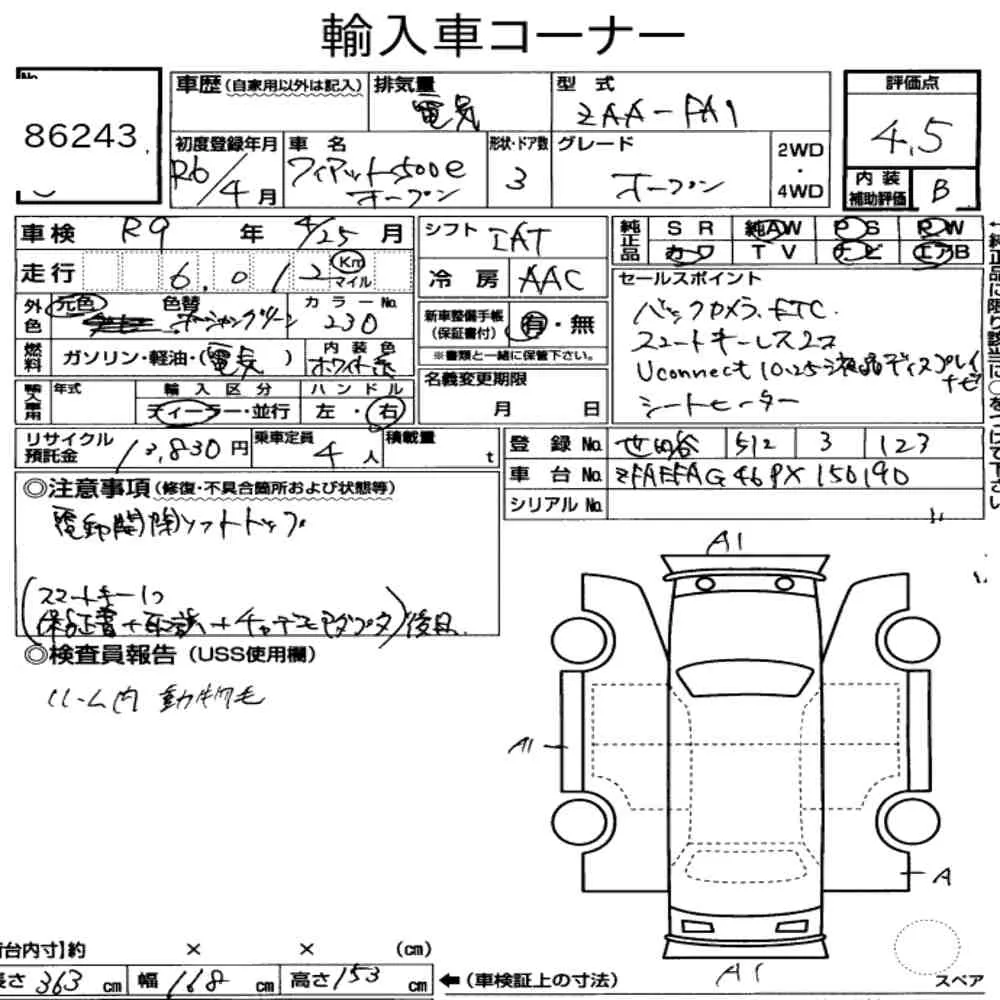 輸入車コーナー
No.
86243
車歴 (自家用以外は記入)
排気量
電気
型 式
ZAA-FA1
評価点
4.5
初度登録年月
R6/4月
車 名
フィアット500e
オープン
形状・ドア数
3
グレード
オープン
2WD
・
4WD
内装
補助評価
B
車検 R9 年 4/25 月
シフト IAT
純正品
S R 純AW P S P W
カワ T V ナビ エアB
走行 6.012 Km
マイル
冷 房 AAC
セールスポイント
バックカメラ、ETC.
スマートキーレス2コ
Uconnect 10.25液晶ディスプレイ
ナビ
シートヒーター
外色
元色 色替
オーシャングリーン
カラー No.
230
新車整備手帳
(保証書付)
有・無
※書類と一緒に保管下さい。
燃料
ガソリン・軽油・(電気)
内 装 色
ホワイト系
名義変更期限
月 日
輸入車用
年式
輸 入 区 分
ディーラー・並行
ハ ン ド ル
左 ・ 右
リサイクル
預託金
13,830 円
乗車定員
4 人
積載量
t
登 録 No. 世田谷 512 3 123
車 台 No. ZFAEFAG46PX150190
シリアル No.
◎注意事項 (修復・不具合箇所および状態等)
電動開閉ソフトトップ
(スマートキー1コ
保証書+取説+チャデモアダプタ)後日.
◎検査員報告 (USS使用欄)
ルーム内 動物毛
A1
A1
A
A1
荷台内寸】約 × × (cm)
長さ 363 cm 幅 168 cm 高さ 153 cm
←(車検証上の寸法)
スペア